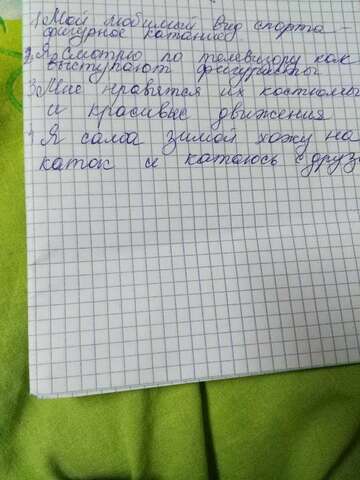 1. Мой любимый вид спорта -
фигурное катание
2. Я смотрю по телевизору как
выступают фигуристы
3. Мне нравятся их костюмы
и красивые движения
Я сама зимой хожу на
каток и катаюсь с друз